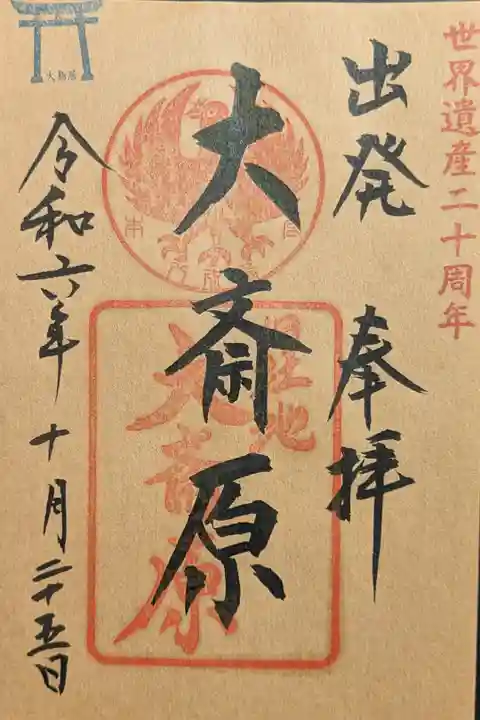 世界遺産二十周年
出発 奉拝
大斎原
旧社地
大斎原
令和六年十月二十五日
大鳥居